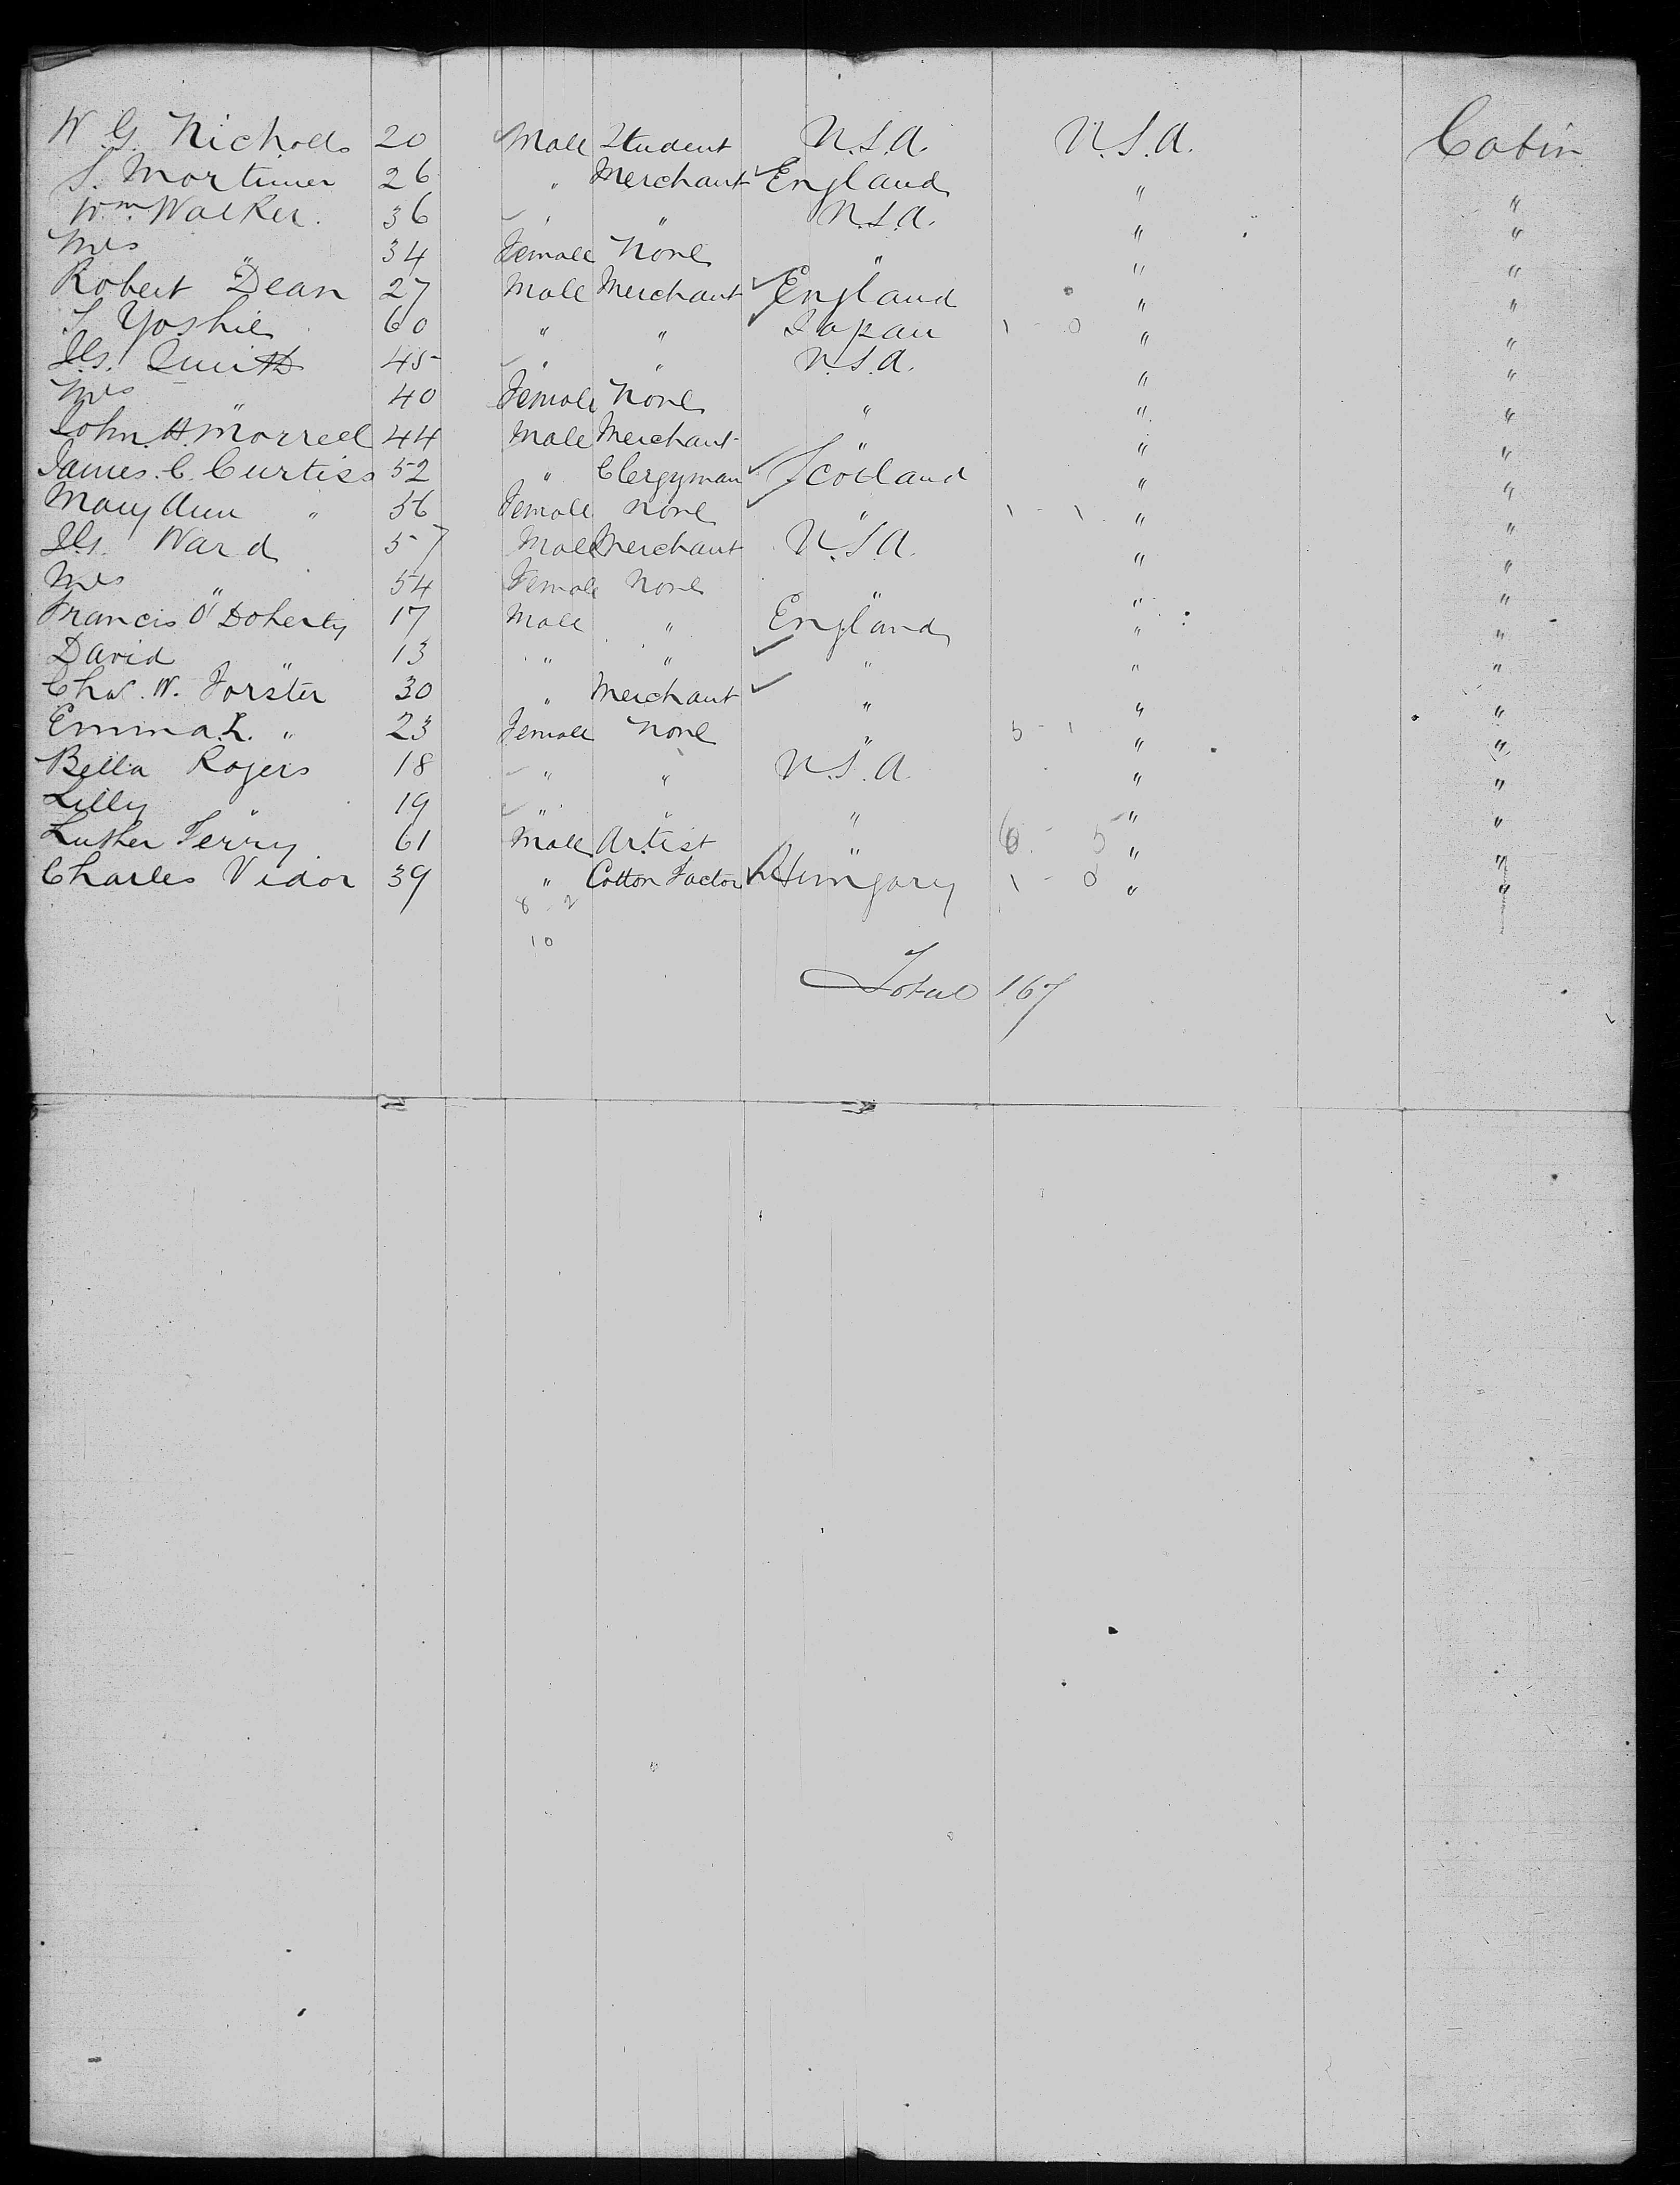 W. G. Nichols 20 Male Student U.S.A. U.S.A. Cabin
S. Mortimer 26 " Merchant England " "
Wm. Walker. 36 " " U.S.A. " "
Mrs " 34 Female None " " "
Robert Dean 27 Male Merchant England " "
Yoshie 60 " " Japan 1 - 0 " "
Smith 45 " " U.S.A. " "
Mrs " 40 Female None " " "
John H. Morrell 44 Male Merchant " " "
James. C. Curtiss 52 " Clergyman Scotland " "
Mary Ann " 56 Female None " 1 - 1 " "
Ward 57 Male Merchant U.S.A. " "
Mrs " 54 Female None " " "
Francis O'Doherty 17 Male " England " "
David " 13 " " " " "
Chas. W. Forster 30 " Merchant " " "
Emma L. " 23 Female None " 5 - 1 " "
Bella Rogers 18 " " U.S.A. " "
Lilly " 19 " " " " "
Luther Terry 61 Male Artist " 6 - 5 " "
Charles Vidor 39 " Cotton Factor Hungary 1 - 0 " "
8 - 2
10
Total 167